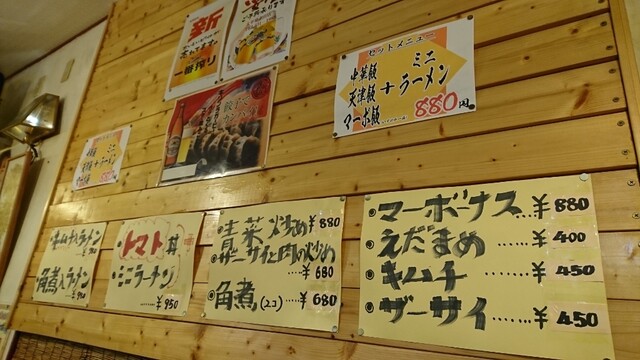 新
一番搾り
セットメニュー
中華飯
天津飯
マーボ飯
+
ミニ
ラーメン
880円
ミニ
+ラーメン
キムチラーメン
角煮入ラーメン
トマト丼
・ミニラーメン
¥950
青菜炒め ¥880
ザーサイと肉の炒め
……¥680
角煮(2コ)……¥680
マーボナス…¥880
えだまめ ……¥400
キムチ ……¥450
ザーサイ ………¥450